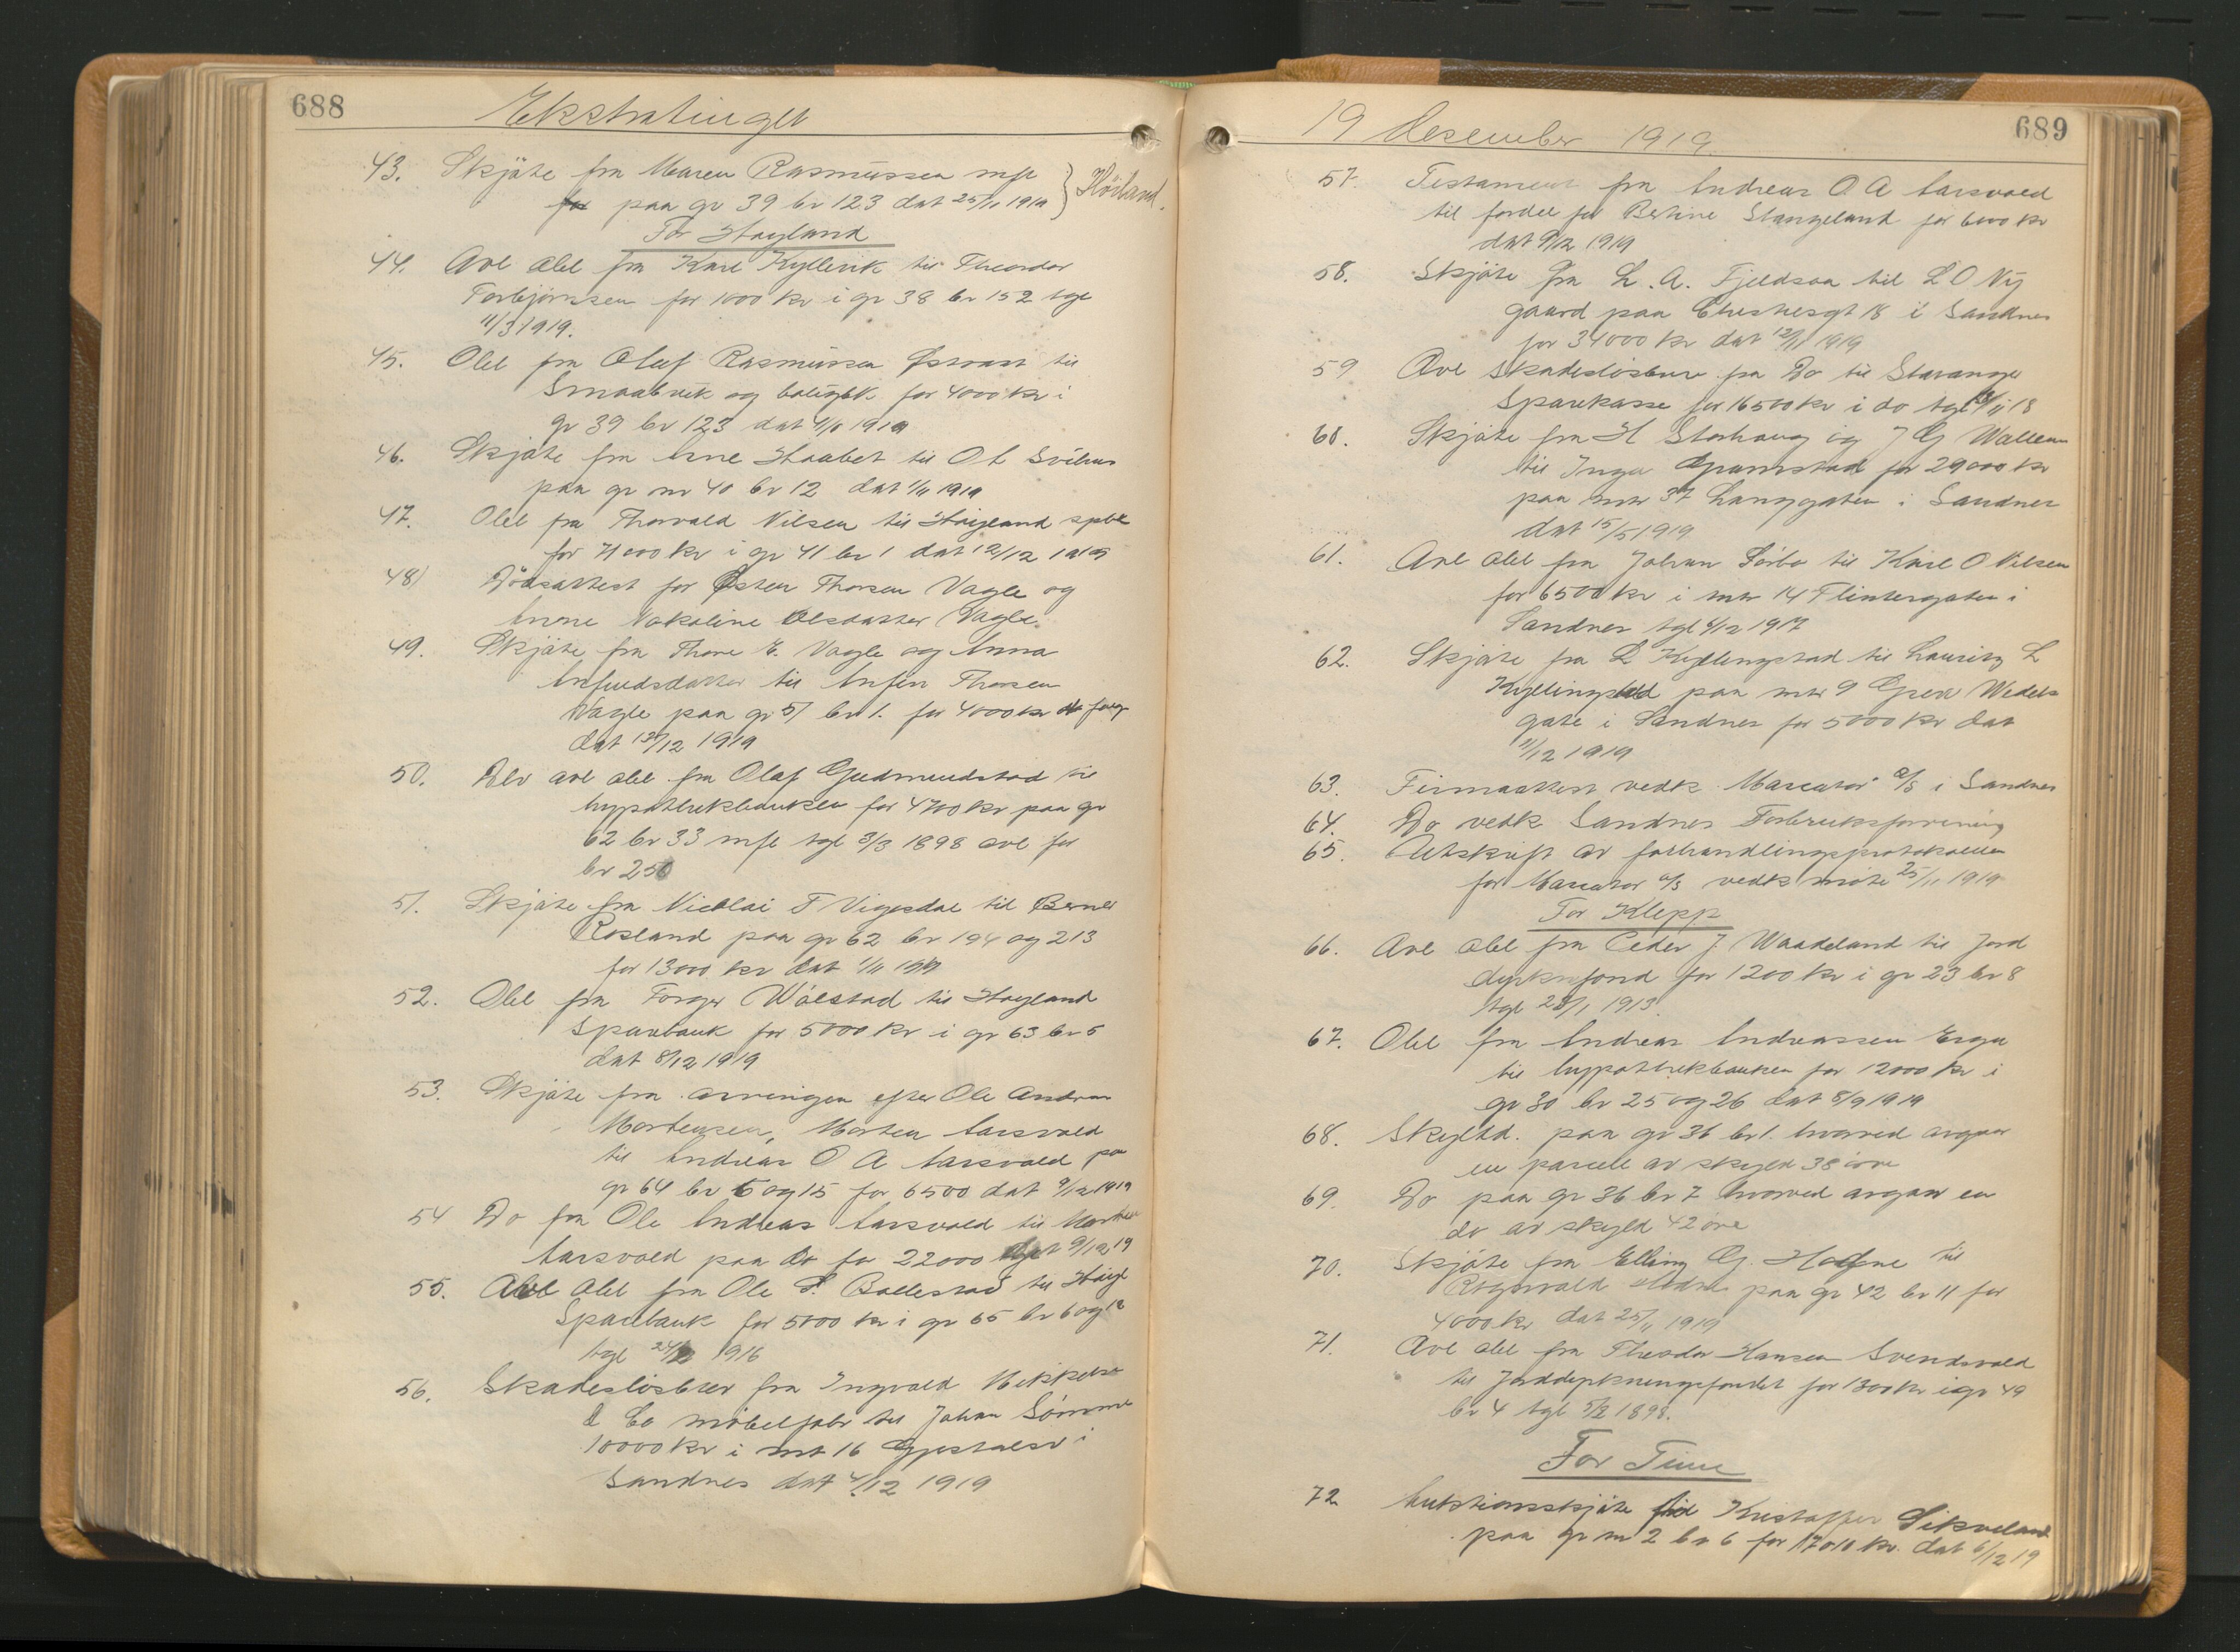 688
Ekstratinget
43. Skjöte fra Maren Rasmussen mfl } Höiland.
paa gr 39 br 123 dat 25/11 1919
For Høyland
44. Avl obl fra Karl Kyllevik til Theodor
Torbjørnsen for 1000 kr i gr 38 br 152 tgl
11/3 1919.
45. Obl fra Oluf Rasmussen til
Smaabruk og boligbk for 4000 kr i
gr 39 br 123 dat 1919
46. Skjöte fra Arne Haabet til O A
paa gr nr 40 br 12 dat 1/11 1919
47. Obl fra Thorvald Nilsen til Høiyland spbk
for kr i gr 41 br 1 dat 12/12 1919
48) Dödsattest for Østen Thorsen Vagle og
Anne Olsdatter Vagle.
49. Skjöte fra Thore E. Vagle og Anna
til Anfin Thorsen
Vagle paa gr 51 br 1. for 4000 kr
dat 13/12 1919
50. Delv avl obl fra Olaf Gudmundstad til
hypothekbanken for 4700 kr paa gr
62 br 33 mfl tgl 3/3 1898 avl for
br 250
51. Skjöte fra Nicolai T Vigesdal til Berner
Rosland paa gr 62 br 194 og 213
for 13000 kr dat 1/11 1919
52. Obl fra Torger Wölstad til Høyland
Sparebank for 5000 kr i gr 63 br 5
dat 8/12 1919
53. Skjöte fra arvingen efter Ole Andreas
Mortensen, Morten Aarsvold
til Andreas O A Aarsvold paa
gr 64 br 5 og 15 for 6500 dat 9/12 1919
54 Do fra Ole Andreas Aarsvold til Morten
Aarsvold paa do for 22000 dat 9/12 19
55. Avl obl fra Ole S. Bollestad til Høiyl
Sparebank for 5000 kr i gr 65 br 6 og 12
tgl 1916
56. Skadeslösbrev fra Ingvald Mikkelsen
& Co möbelfabr til Johan Sömme
10000 kr i mtr 16 Gjesdalsv i
Sandnes dat 4/12 1919
19 desember 1919.
689
57. Testament fra Andreas O A Aarsvold
til fordel for Bertine Stangeland for 6000 kr
dat 9/12 1919
58. Skjöte fra L. A. Fjeldsaa til L O Ny
gaard paa Elvesnesgt 18 i Sandnes
for 34000 kr dat 12/11 1919
59 Avl skadeslösbrev fra Do til Stavanger
Sparekasse for 16500 kr i do tgl 18
60. Skjöte fra H Storhaug og J G Wallem
til Inga Gramstad for 29000 kr
paa mtr 37 Langgaten i Sandnes
dat 15/5 1919
61. Avl obl fra Johan Sörbo til Karl O Nilsen
for 6500 kr i mtr 14 Flintergaten i
Sandnes tgl 4/12 1917
62. Skjöte fra L Kyllingstad til Lauritz L
Kyllingstad paa mtr 9 Grev Wedels
gate i Sandnes for 5000 kr dat
11/12 1919
63. Firmaattest vedk Mercator a/s i Sandnes
64. Do vedk Sandnes Forbruksforening
65. Utskrift av forhandlingsprotokollen
for Mercator a/s vedk möte 25/11 1919
For Klepp
66. Avl obl fra Peder J Waadeland til Jord
dyrkn fond for 1200 kr i gr 23 br 8
tgl 28/1 1913.
67. Obl fra Andreas Andreassen Erga
til hypothekbanken for 12000 kr i
gr 30 br 25 og 26 dat 8/9 1919
68. Skyldd. paa gr 36 br 1. hvorved avgaar
en parcell av skyld 38 öre
69. Do paa gr 36 br 7 hvorved avgaar en
do av skyld 42 öre
70. Skjöte fra Elling G. Hodne til
Rognvald Hodne paa gr 42 br 11 for
4000 kr dat 25/11 1919
71. Avl obl fra Theodor Hansen Svendsvold
til Jorddyrkningsfondet for 1300 kr i gr 49
br 4 tgl 5/2 1898.
For Time
72 Auktionsskjöte til Kristoffer Sikveland
paa gr nr 2 br 6 for 17010 kr. dat 6/12 19